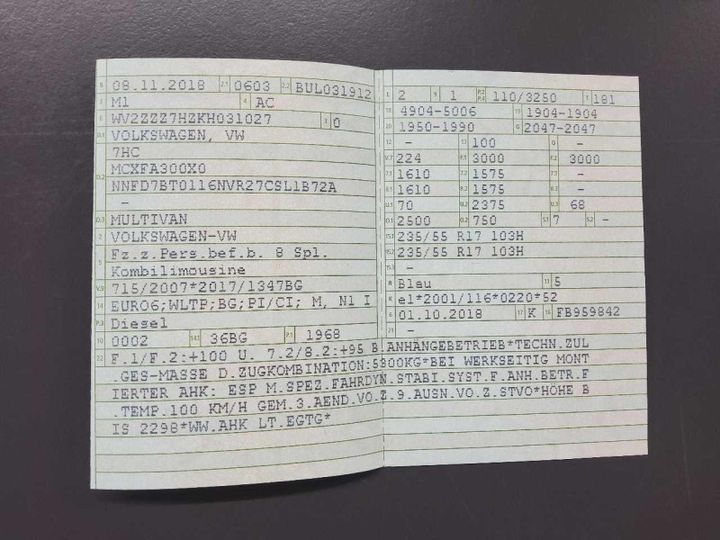 B 08.11.2018 2.1 0603 2.2 BUL031912
J M1 4 AC
E WV2ZZZ7HZKH031027 3 0
D.1 VOLKSWAGEN, VW
7HC
D.2 MCXFA300X0
NNFD7BT0116NVR27CSL1B72A
-
D.3 MULTIVAN
2 VOLKSWAGEN-VW
5 Fz.z.Pers.bef.b. 8 Spl.
Kombilimousine
V.9 715/2007*2017/1347BG
14 EURO6;WLTP;BG;PI/CI; M, N1 I
P.3 Diesel
10 0002 14.1 36BG P.1 1968
L 2 9 1 P.2 P.4 110/3250 T 181
18 4904-5006 19 1904-1904
20 1950-1990 G 2047-2047
12 - 13 100 Q -
V.7 224 F.1 3000 F.2 3000
7.1 1610 7.2 1575 7.3 -
8.1 1610 8.2 1575 8.3 -
U.1 70 U.2 2375 U.3 68
O.1 2500 O.2 750 S.1 7 S.2 -
15.1 235/55 R17 103H
15.2 235/55 R17 103H
15.3 -
R Blau 11 5
K e1*2001/116*0220*52
6 01.10.2018 17 K 16 FB959842
21 -
22 F.1/F.2:+100 U. 7.2/8.2:+95 B.ANHÄNGEBETRIEB*TECHN.ZUL
.GES-MASSE D.ZUGKOMBINATION:5300KG*BEI WERKSEITIG MONT
IERTER AHK: ESP M.SPEZ.FAHRDYN.STABI.SYST.F.ANH.BETR.F
.TEMP.100 KM/H GEM.3.AEND.VO.Z.9.AUSN.VO.Z.STVO*HÖHE B
IS 2298*WW.AHK LT.EGTG*